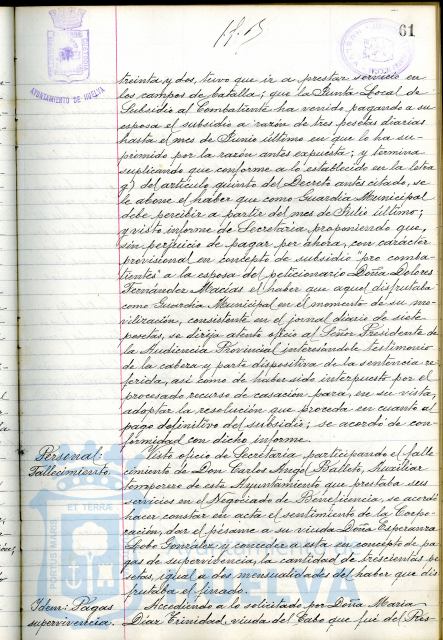 61
AYUNTAMIENTO DE HUELVA
treinta y dos, tuvo que ir a prestar servicio en
los campos de batalla; que la Junta Local de
Subsidio al Combatiente ha venido pagando a su
esposa el subsidio a razón de tres pesetas diarias
hasta el mes de Junio último en que lo ha su-
primido por la razón antes expuesta; y termina
suplicando que conforme a lo establecido en la letra
g) del artículo quinto del Decreto antes citado, se
le abone el haber que como Guardia Municipal
debe percibir a partir del mes de Julio último;
y visto informe de Secretaría proponiendo que,
sin perjuicio de pagar por ahora, con carácter
provisional en concepto de subsidio "pro comba-
tientes" a la esposa del peticionario Doña Dolores
Fernández Macías el haber que aquel disfrutaba
como Guardia Municipal en el momento de su mo-
vilización, consistente en el jornal diario de siete
pesetas, se dirija atento oficio al Señor Presidente de
la Audiencia Provincial interesándole testimonio
de la cabeza y parte dispositiva de la sentencia re-
ferida, así como de haber sido interpuesto por el
procesado recurso de casación para, en su vista,
adoptar la resolución que proceda en cuanto al
pago definitivo del subsidio; se acordó de con-
formidad con dicho informe.
Personal: Visto oficio de Secretaría participando el falle-
Fallecimiento. cimiento de Don Carlos Angel Ballesto, Auxiliar
temporero de este Ayuntamiento que prestaba sus
servicios en el Negociado de Beneficencia, se acordó
hacer constar en acta el sentimiento de la Corpo-
ración, dar el pésame a su viuda Doña Esperanza
Lobo González y conceder a esta en concepto de pa-
gas de supervivencia, la cantidad de trescientas pe-
setas, igual a dos mensualidades del haber que dis-
frutaba el finado.
Idem: Pagas Accediendo a lo solicitado por Doña María
supervivencia. Díaz Trinidad, viuda del Cabo que fué del Res-